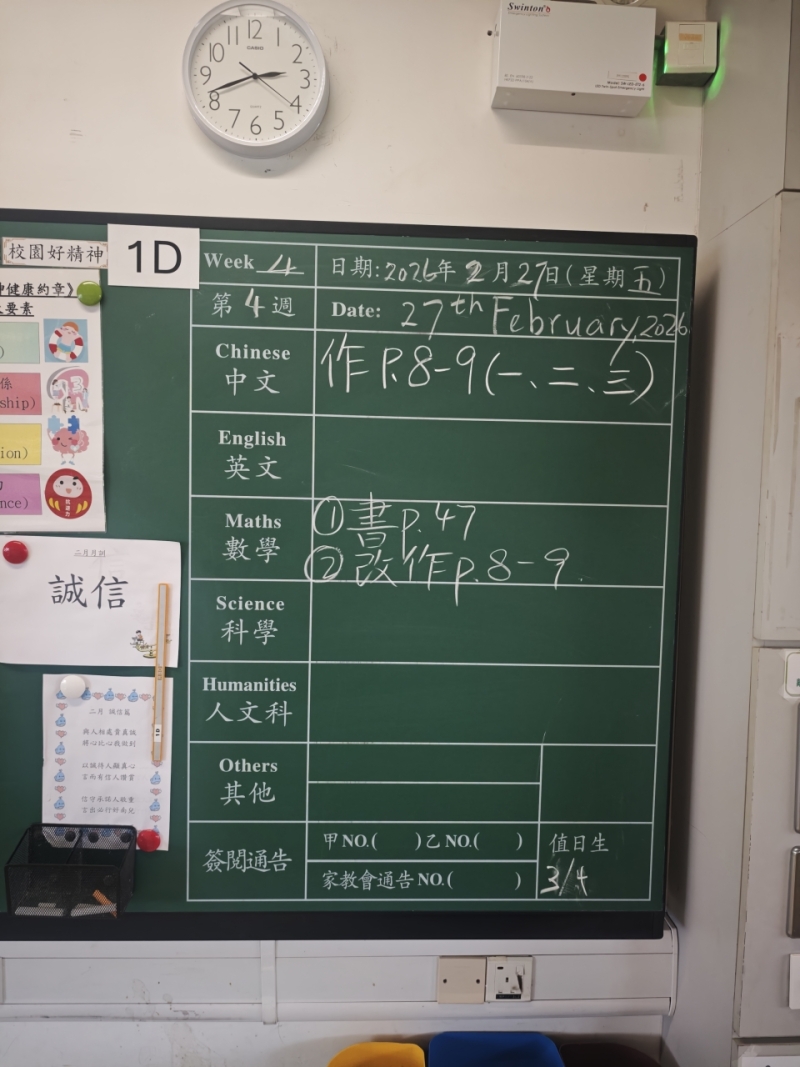 Swinton
CASIO
12
1
2
3
4
5
6
7
8
9
10
11
校園好精神
1D
Week 4
日期:2026年 2月 27日(星期五)
第 4 週
Date: 27th February, 2026
Chinese
中文
作 P.8-9(一、二、三)
English
英文
Maths
數學
① 書 p.47
② 改作 p.8-9.
Science
科學
Humanities
人文科
Others
其他
簽閱通告
甲 NO.( ) 乙 NO.( )
家教會通告 NO.( )
值日生
3/4
健康約章》
要素
係
ship)
ion)
nce)
二月月訓
誠信
二月 誠信篇
與人相處貴真誠
將心比心我做到
以誠待人顯真心
言而有信人讚賞